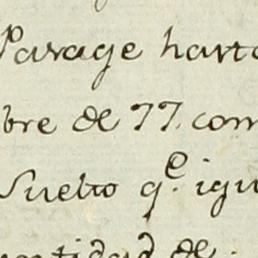 Parage harto
bre de 77. com
Suelto q.e igu
cantidad de